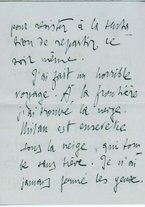 pour résister à la tenta-
tion de repartir le
soir même.
J'ai fait un horrible
voyage. A la frontière
j'ai trouvé la neige.
Milan est ensevelie
sous la neige, qui tom-
be sans trève. Je n'ai
jamais fermé les yeux.